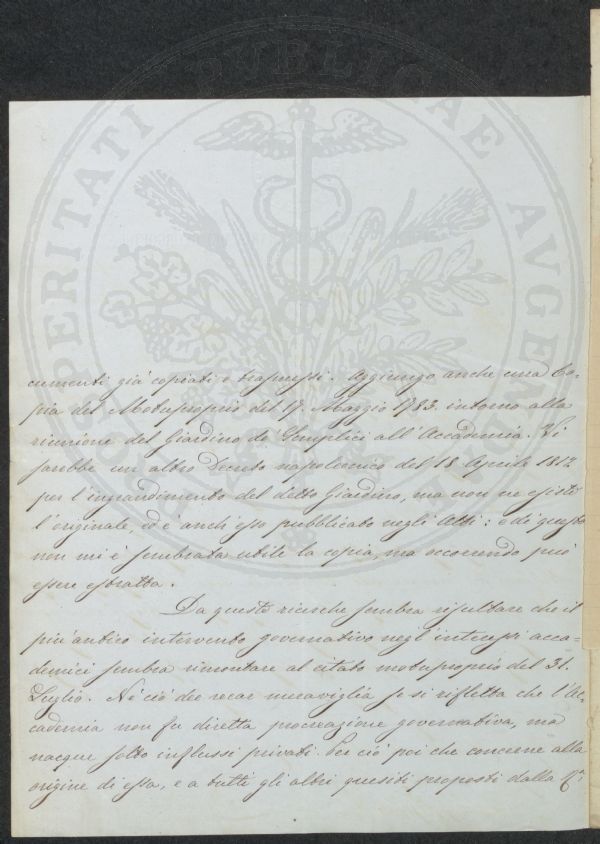 PROSPERITATI PUBLICAE AVGENDAE
cumenti già copiati e trasmessi. Aggiungo anche una Co-
pia del Motuproprio del 17. Maggio 1783. intorno alla
riunione del Giardino de' Semplici all'Accademia. Vi
sarebbe un altro Decreto napoleonico del 18 Aprile 1812
per l'ingrandimento del detto Giardino, ma non ne esiste
l'originale, ed è anch'esso pubblicato negli Atti: e di questo
non mi è sembrata utile la copia, ma occorrendo può
essere estratta.
Da queste ricerche sembra risultare che il
più antico intervento governativo negl'interessi acca-
demici sembra rimontare al citato motuproprio del 31.
Luglio. Nè ciò dee recar meraviglia se si rifletta che l'Ac-
cademia non fu diretta procreazione governativa, ma
nacque sotto influssi privati. Per ciò poi che concerne alla
origine di essa, e a tutti gli altri quesiti proposti dalla